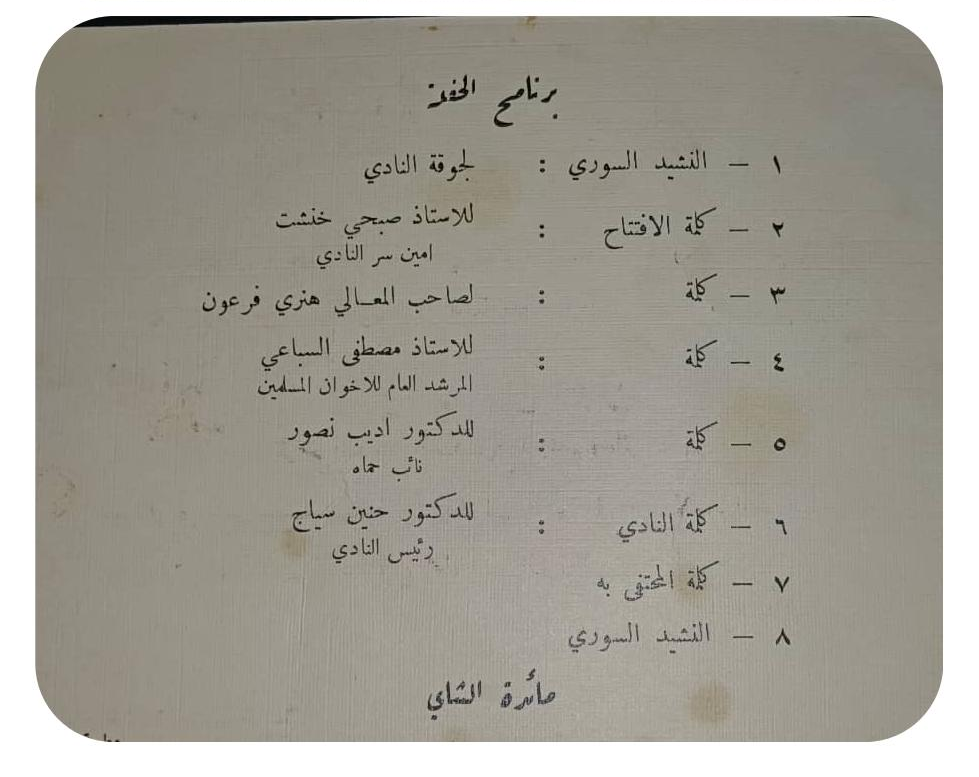 برنامج الحفلة
١ – النشيد السوري : لجوقة النادي
٢ – كلمة الافتتاح : للاستاذ صبحي خنشت
امين سر النادي
٣ – كلمة : لصاحب المعـالي هنري فرعون
٤ – كلمة : للاستاذ مصطفى السباعي
المرشد العام للاخوان المسلمين
٥ – كلمة : للدكتور اديب نصور
نائب حماه
٦ – كلمة النادي : للدكتور حنين سياج
رئيس النادي
٧ – كلمة المحتفى به
٨ – النشيد السوري
مائدة الشاي